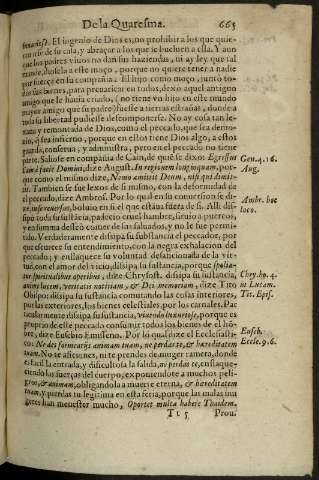 De la Quaresma. 665
El ingenio de Dios es, no prohibira los que quie-
rirse de su casa, y abraçar a los que se bueluen a ella. Y aun
que los padres viuos no dan sus haziendas, ni ay ley que tal
mande, diosela a este moço, porque no quiere tener a nadie
por fuerça en su compañia. El hijo como moço, juntò to-
dos sus bienes, para peruaricar en todos, dexò aquel antiguo
amigo que le hauia criado, (no tiene vn hijo en este mundo
mayor amigo que su padre) fuesse a tierras estrañas, donde a
toda su libertad pudiesse descomponerse. No ay cosa tan le-
xana y remontada de Dios, como el peccado, que sea demo-
nio, q̃ sea infierno, porque en estos tiene Dios algo, a estos
guarda, conserua, y administra, pero en el peccado no tiene
parte. Saliose en compañia de Cain, de quiē se dixo: Egressus
Cain à facie Domini, dize August. In regionem longinquam, por-
que como el mismo dize, Nemo amittit Deum, nisi qui dimit-
tit. Tambien se fue lexos de si mismo, con la deformidad de
el peccado, dize Ambros. Por lo qual en su conuersion se di-
ze, in se reuersus, boluiose en si el que estaua fuera de si. Alli dis-
sipò toda su sustancia, padecio cruel hambre, siruio a puercos,
y en summa desseò comer de sus saluados, y no le fue permi-
tido. Verdaderamente dissipa su sustancia el peccador, por
que obscurece su entendimiento, con la negra exhalacion del
peccado; y enflaquece su voluntad desaficionada de la vir-
tud, con el amor del vicio, dissipa su sustancia, porque spolia-
tus spiritualibus opibus, dize Chrysost. dissipa su sustancia,
animi lucem, veritatis notitiam, & Dei memoriam, dize Tito
Obispo: dissipa su sustancia comutando las cosas interiores,
por las exteriores, los bienes celestiales, por los carnales. Par
ticularmente dissipa su sustancia, viuendo luxuriose, porque es
proprio de este peccado consumir todos los bienes de el hõ-
bre, dize Eusebio Emisseno. Por lo qual dize el Ecclesiasti-
co: Ne des fornicarijs animam tuam, ne perdas te, & hereditatem
tuam. No te aficiones, ni te prendes de muger ramera, donde
es facil la entrada, y dificultosa la salida, ne perdas te, enflaque-
ciendo las fuerças del cuerpo, exponiendote a muchos peli-
gros, & animam, obligandola a muerte eterna, & hereditatem
tuam, y pierdas tu legitima en esta feria, porque las malas mu
geres han menester mucho, Oportet multa habere Thaidem.
Tt 5 Prou.
Gen. 4. 16.
Aug.
Ambr. hoc
loco.
Chry. ho. 4.
in Lucam.
Tit. Epis.
Euseb.
Eccle. 9. 6.